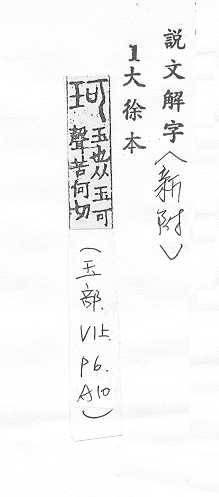 說文解字(新附)
1大徐本
珂 玉也从玉可
聲苦何切
(玉部.
V1上.
P6.
A10)